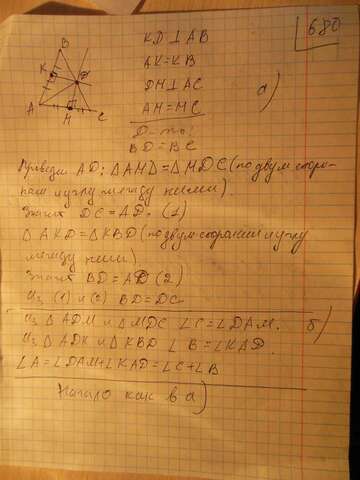 680
B
K
D
A
H
C
KD⊥AB
AK=KB
DH⊥AC
AH=HC
а)
Д-ть:
BD=BC
Проведём AD; ΔAHD=ΔHDC (по двум сторо-
нам и углу между ними).
Значит DC=AD. (1)
ΔAKD=ΔKBD (по двум сторонам и углу
между ними)
Значит BD=AD (2)
Из (1) и (2) BD=DC
Из ΔADM и ΔMDC ∠C=∠DAM. б)
Из ΔADK и ΔKBD ∠B=∠KAD.
∠A=∠DAM+∠KAD=∠C+∠B
Начало как в а)